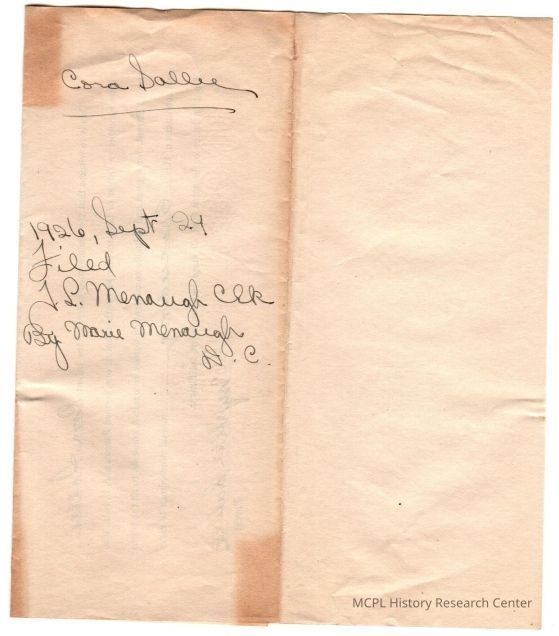 Cora Sallee
1926, Sept 24
Filed
J L. Menaugh Clk
By Marie Menaugh
D. C.
MCPL History Research Center